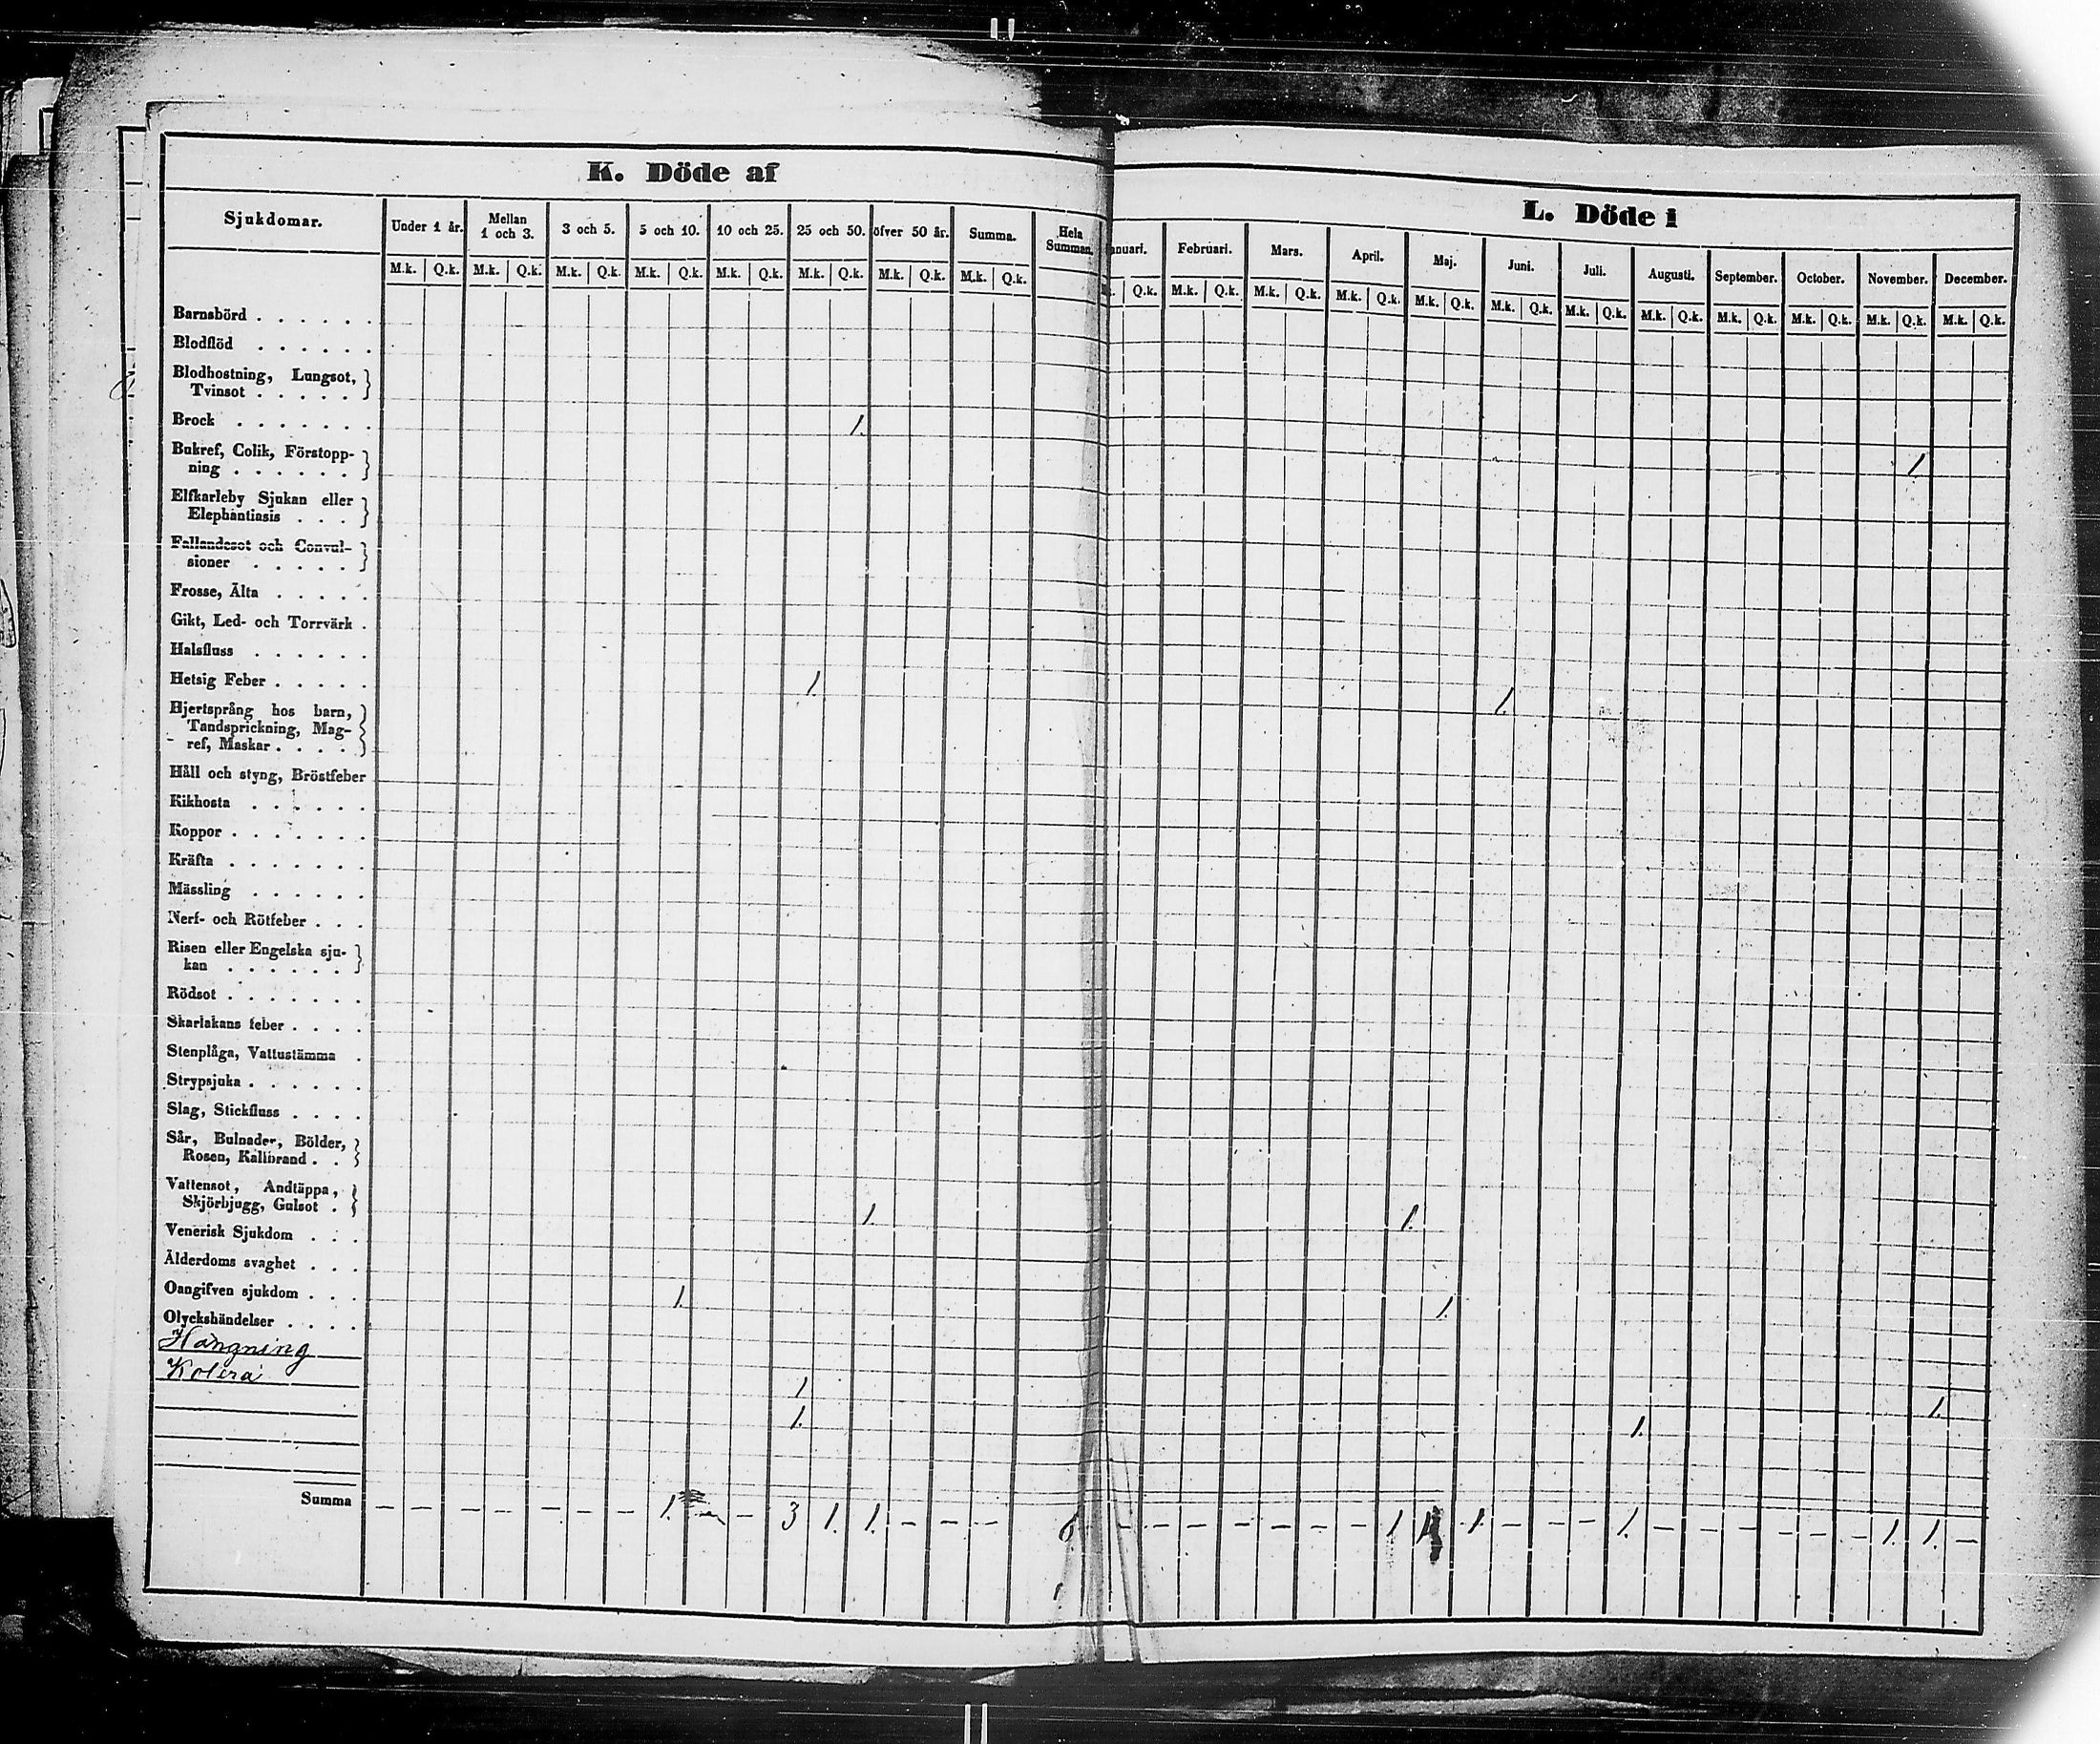 K. Döde af
Sjukdomar.
Under 1 år.
Mellan
1 och 3.
3 och 5.
5 och 10.
10 och 25.
25 och 50.
öfver 50 år.
Summa.
Hela
Summan.
M.k. Q.k. M.k. Q.k. M.k. Q.k. M.k. Q.k. M.k. Q.k. M.k. Q.k. M.k. Q.k. M.k. Q.k.
Barnsbörd . . . . . .
Blodflöd . . . . . .
Blodhostning, Lungsot,
Tvinsot . . . . .
Brock . . . . . . . 1.
Bukref, Colik, Förstopp-
ning . . . . . .
Elfkarleby Sjukan eller
Elephantiasis . . .
Fallandesot och Convul-
sioner . . . . .
Frosse, Älta . . . . .
Gikt, Led- och Torrvärk .
Halsfluss . . . . . .
Hetsig Feber . . . . . 1.
Hjertsprång hos barn,
Tandsprickning, Mag-
ref, Maskar . . . .
Håll och styng, Bröstfeber
Kikhosta . . . . . .
Koppor . . . . . . .
Kräfta . . . . . . .
Mässling . . . . . .
Nerf- och Rötfeber . . .
Risen eller Engelska sju-
kan . . . . . .
Rödsot . . . . . . .
Skarlakans feber . . . .
Stenplåga, Vattustämma .
Strypsjuka . . . . . .
Slag, Stickfluss . . . .
Sår, Bulnader, Bölder,
Rosen, Kallbrand . .
Vattensot, Andtäppa,
Skjörbjugg, Gulsot . 1.
Venerisk Sjukdom . . .
Ålderdoms svaghet . . .
Oangifven sjukdom . . . 1.
Olyckshändelser . . . .
Hängning 1
Kolera 1.
Summa — — — — — — 1. — — 3 1. 1. — — — 6
L. Döde i
anuari.
Februari.
Mars.
April.
Maj.
Juni.
Juli.
Augusti.
September.
October.
November.
December.
Q.k. M.k. Q.k. M.k. Q.k. M.k. Q.k. M.k. Q.k. M.k. Q.k. M.k. Q.k. M.k. Q.k. M.k. Q.k. M.k. Q.k. M.k. Q.k. M.k. Q.k.
1
1.
1.
1.
1.
1.
— — — — — — — 1 — 1 — — — 1. — — — — — — 1. 1. —